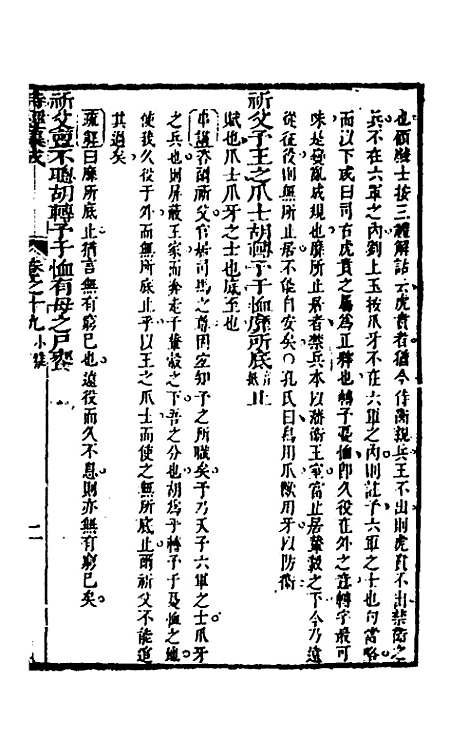 也頎慶士按三禮解詁云虎賁者猶今侍衛親兵王不出則虎賁不出禁衛之
兵不在六軍之內則上玉抜爪牙不在六軍之內則註予六軍之士也句當略
而以下或曰司右虎賁之屬為正釋也轉予憂恤即久役在外之意轉字最可
味是變亂成規也靡所止居者禁兵本以藩衛王室當止居輦轂之下今乃遠
從征役則無所止居不能自安矣○孔氏曰鳥用爪獸用牙以防衛
祈父予王之爪士胡轉予于恤靡所底止
賦也爪士爪牙之士也底至也
串講祈父官居司馬之尊固宜知予之所職矣予乃天子六軍之士爪牙
之兵也則屏蔽王家而奔走于輦轂之下吾之分也胡為乎轉予于憂恤之地
使我久役于外而無所底止乎以王之爪士而使之無所底止爾祈父不能逭
其過矣
疏義曰靡所底止猶言無有窮已也遠役而久不息則亦無有窮已矣
祈父亶不聰胡轉予于恤有母之尸饔
卷之十九 小雅 二